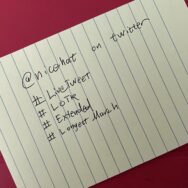 @nicohat on twitter
# LiveTweet
# LOTR
# Extended
# Longest March